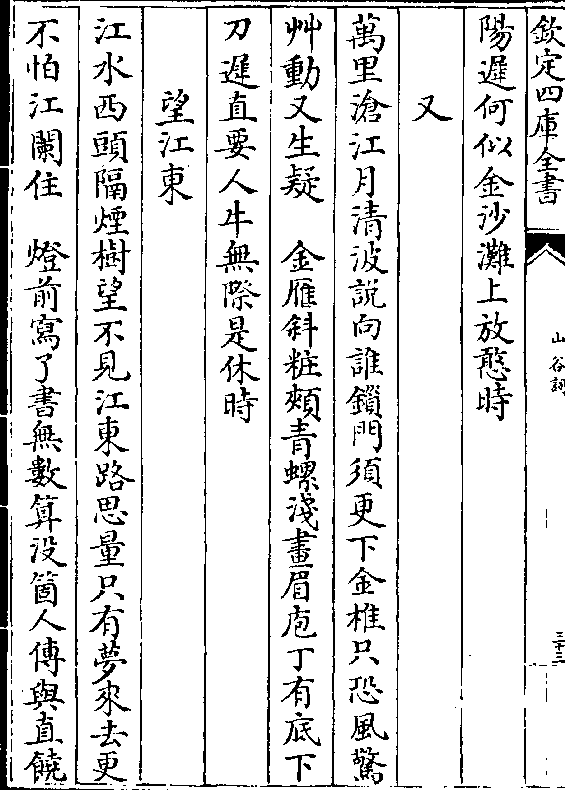 欽定四庫全書
山谷詞
三十三
陽遲何似金沙灘上放憨時
又
萬里滄江月清波說向誰鎖門須更下金椎只恐風驚
艸動又生疑　金雁斜粧頰青螺淺畫眉庖丁有底下
刀遲直要人牛無際是休時
望江東
江水西頭隔煙樹望不見江東路思量只有夢來去更
不怕江闌住　燈前寫了書無數算没箇人傳與直饒